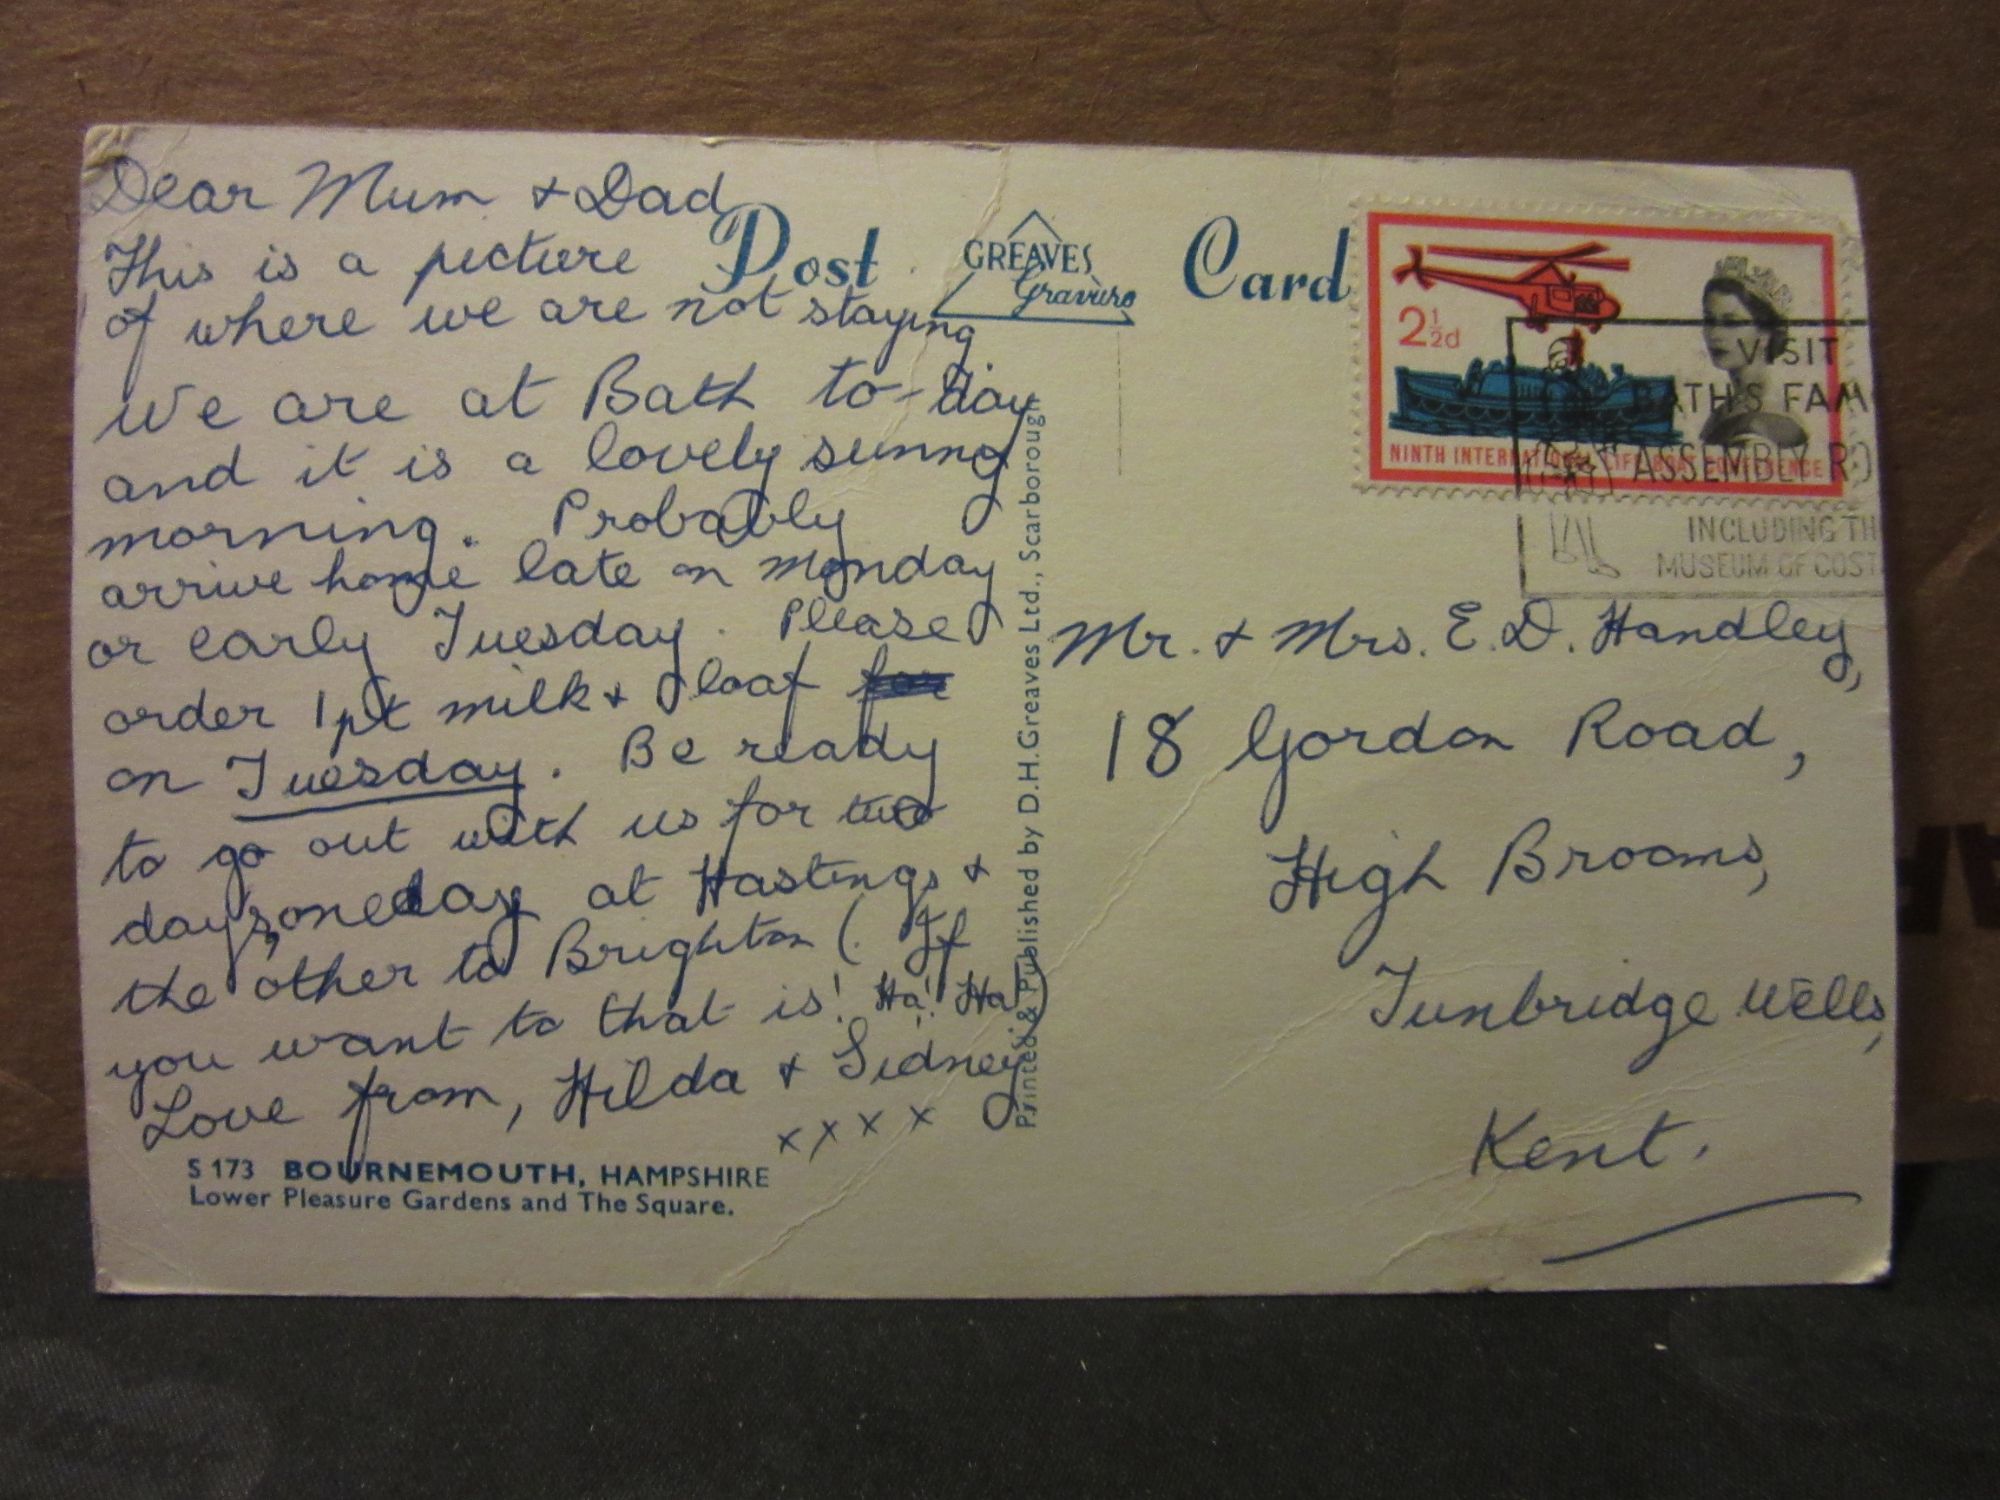 Dear Mum + Dad
This is a picture
of where we are not staying
We are at Bath to-day
and it is a lovely sunny
morning. Probably
arrive home late on Monday
or early Tuesday. Please
order 1 pt milk + loaf
on Tuesday. Be ready
to go out with us for two
days, one day at Hastings +
the other to Brighton (. If
you want to that is! Ha! Ha!)
Love from, Hilda + Sidney
x x x x
S 173 BOURNEMOUTH, HAMPSHIRE
Lower Pleasure Gardens and The Square.
Post Card
GREAVES
Gravure
Printed & Published by D.H.Greaves Ltd., Scarborough
2½d
NINTH INTERNATIONAL LIFE-BOAT CONFERENCE
VISIT
BATH'S FAM
ASSEMBLY RO
INCLUDING TH
MUSEUM OF COST
Mr. + Mrs. E. D. Handley,
18 Gordon Road,
High Brooms,
Tunbridge Wells,
Kent.